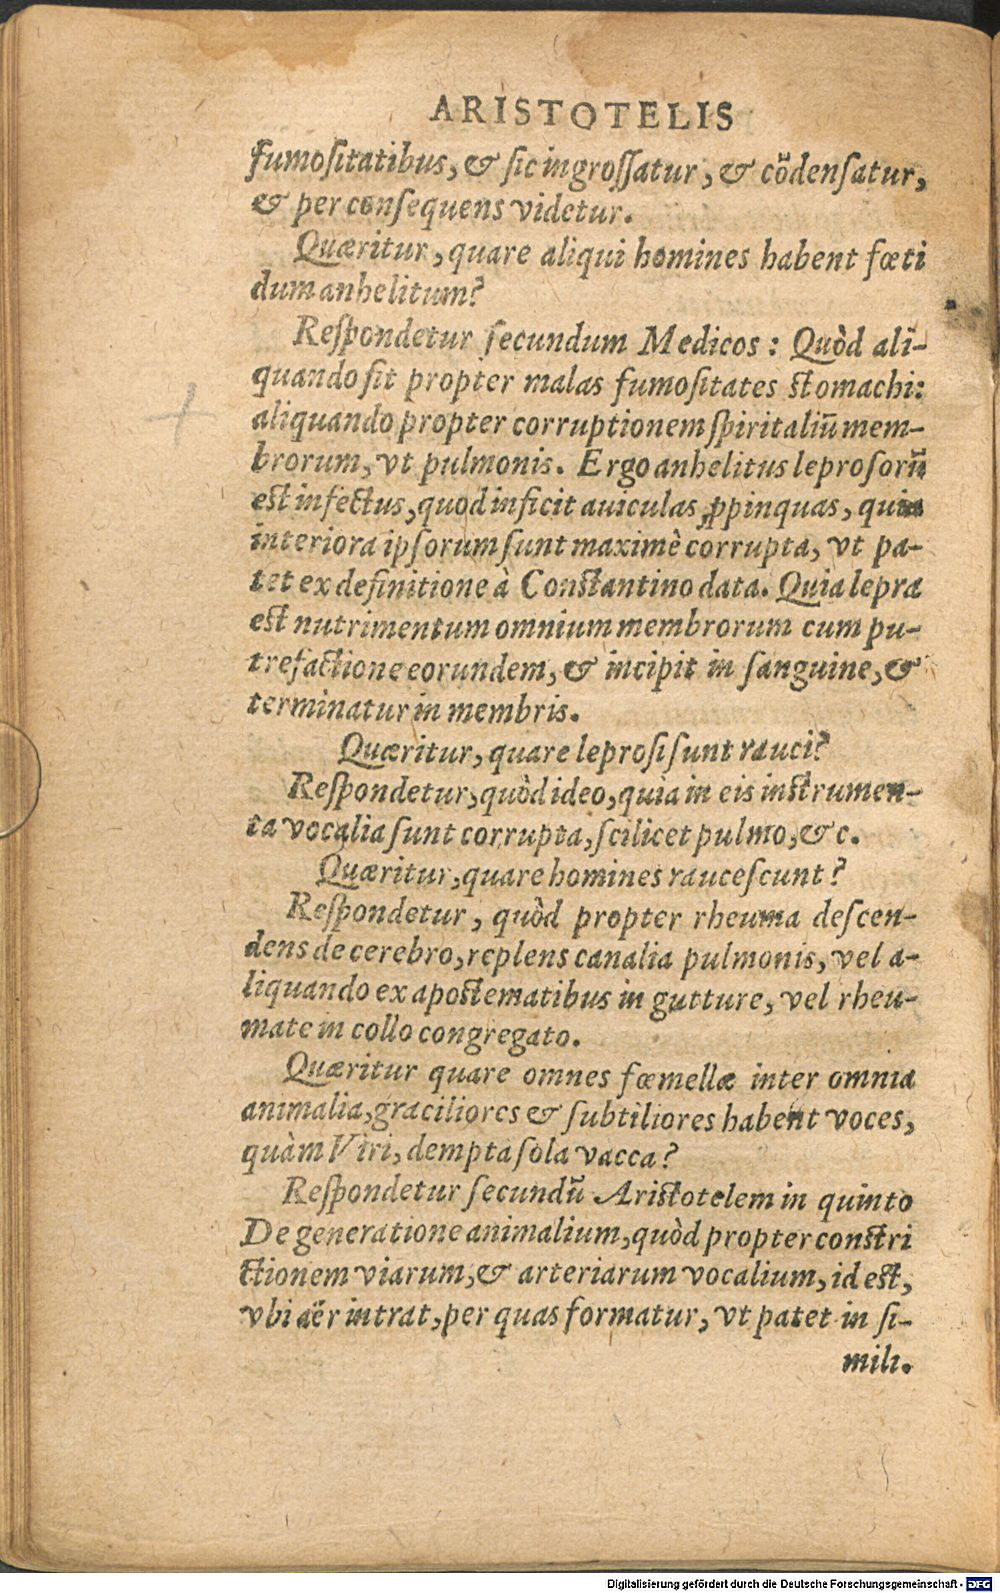 ARISTOTELIS
fumoſitatibus, & ſic ingroſſatur, & cõdenſatur,
& per conſequens videtur.
Quæritur, quare aliqui homines habent fœti
dum anhelitum?
Reſpondetur ſecundum Medicos: Quòd ali-
quando ſit propter malas fumoſitates ſtomachi:
aliquando propter corruptionem ſpiritaliũ mem-
brorum, vt pulmonis. Ergo anhelitus leproſorũ
eſt infectus, quod inficit auiculas ꝓpinquas, quia
interiora ipſorum ſunt maximè corrupta, vt pa-
tet ex definitione à Conſtantino data. Quia lepra
eſt nutrimentum omnium membrorum cum pu-
trefactione eorundem, & incipit in ſanguine, &
terminatur in membris.
Quæritur, quare leproſi ſunt rauci?
Reſpondetur, quòd ideo, quia in eis inſtrumen-
ta vocalia ſunt corrupta, ſcilicet pulmo, &c.
Quæritur, quare homines rauceſcunt?
Reſpondetur, quòd propter rheuma deſcen-
dens de cerebro, replens canalia pulmonis, vel a-
liquando ex apoſtematibus in gutture, vel rheu-
mate in collo congregato.
Quæritur quare omnes fœmellæ inter omnia
animalia, graciliores & ſubtiliores habent voces,
quàm Viri, dempta ſola vacca?
Reſpondetur ſecundũ Ariſtotelem in quinto
De generatione animalium, quòd propter conſtri
ctionem viarum, & arteriarum vocalium, id eſt,
vbi aër intrat, per quas formatur, vt patet in ſi-
mili.
Digitalisierung gefördert durch die Deutsche Forschungsgemeinschaft - DFG